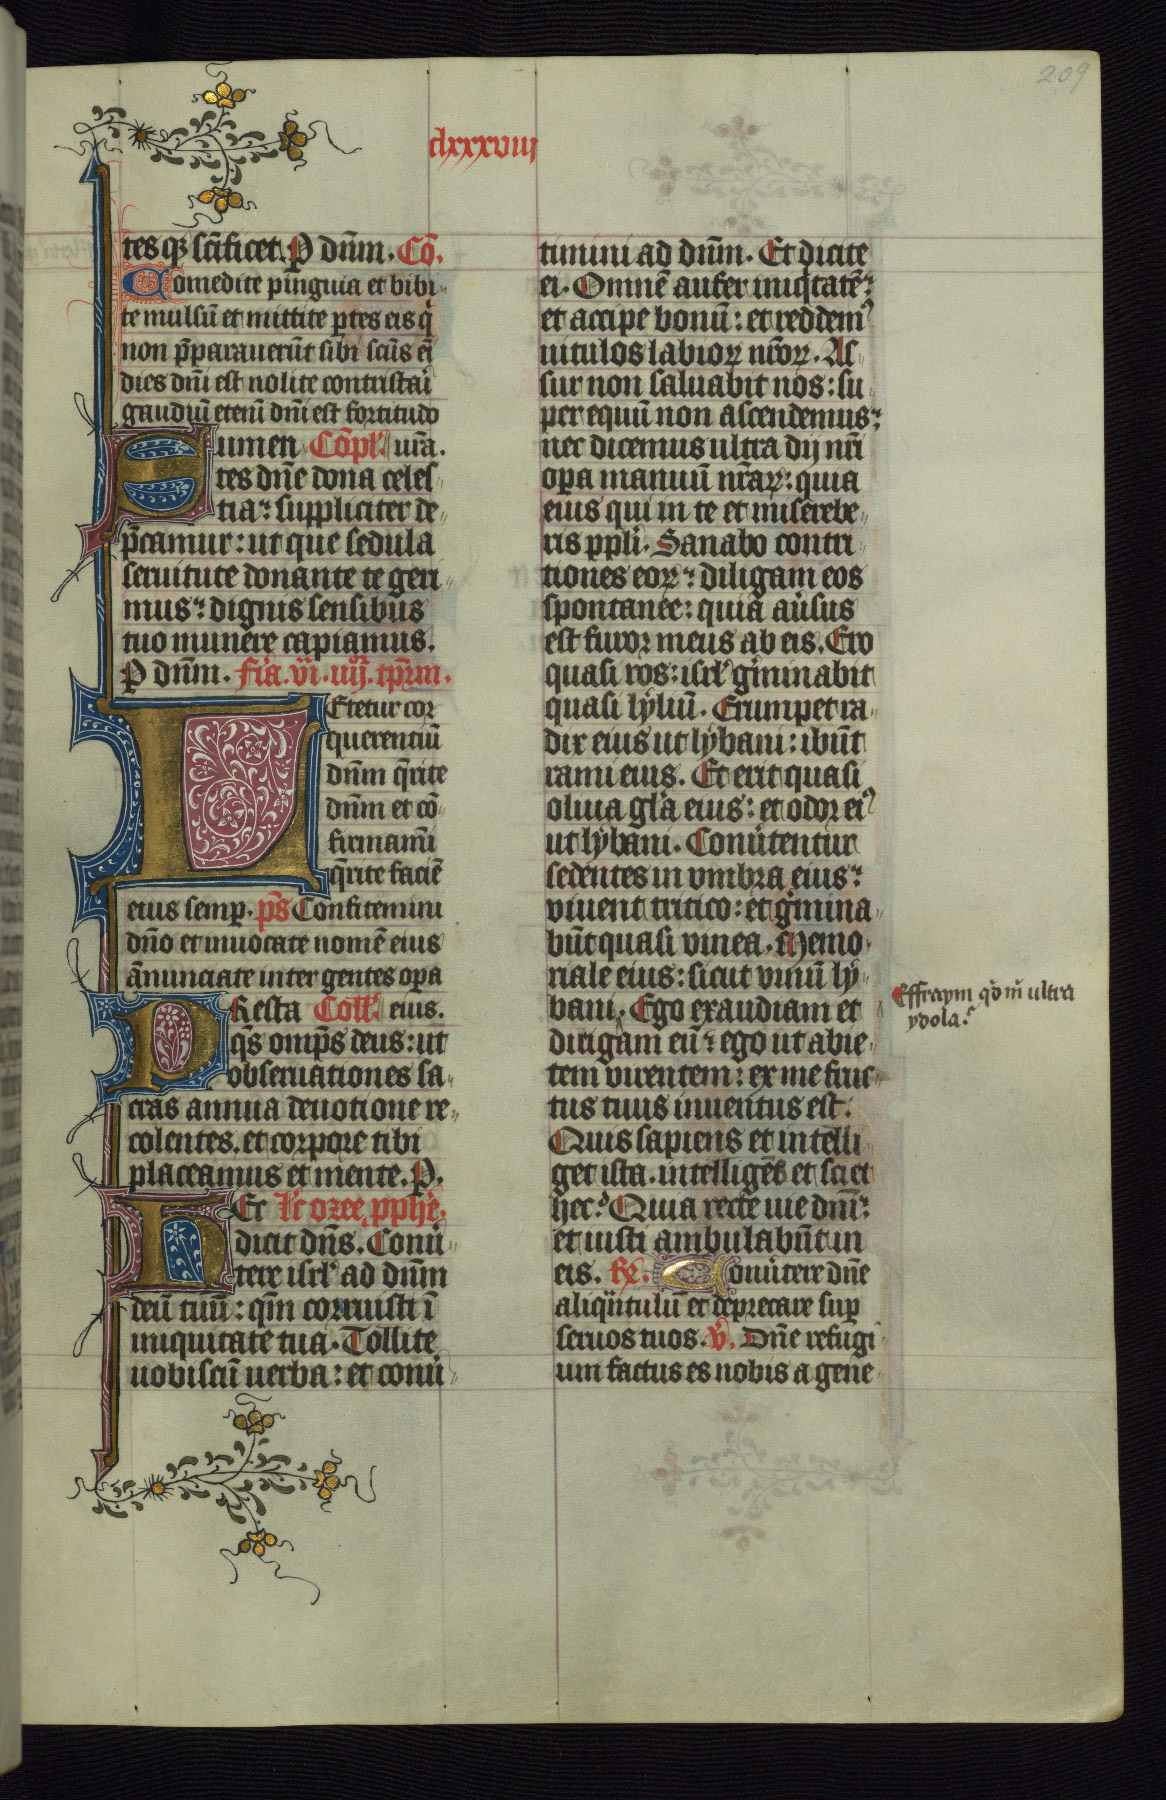 209
clxxxviii
tes qꝫ scificet. P dnm. Cō.
Comedite pinguia et bibi-
te mulsū et mittite ptes eis q̇
non p̄parauerūt sibi scūs eī
dies dn̄i est nolite contristaī
gaudiū etenī dn̄i est fortitudo
Sumen Cōpl. ur̄a.
tes dn̄e dona celes-
tia: suppliciter de-
p̄camur: ut que sedula
seruitute donante te geri-
mus: dignis sensibus
tuo munere capiamus.
P dn̄m. Fīa. vī. iiijͦꝛ. tp̄rm.
LEtetur cor
querentiū
dn̄m q̄rite
dn̄m et cō-
firmam̄i
q̄rite faciē
eius semp. p̄s Confitemini
dn̄o et inuocate nomē eius
ānunciate inter gentes opa
PResta Coll̄. eius.
q̄s omp̄s deus: ut
obseruationes sa-
cras annua deuotione re-
colentes. et corpore tibi
placeamus et mente. P.
HEc l̄c ozee pphē.
dicit dn̄s. Conū-
tere isrl̄ ad dn̄m
deū tuū: qm̄ corruisti ī
iniquitate tua. Tollite
uobiscū uerba: et conū-
timini ad dn̄m. Et dicite
ei. Omnē aufer iniq̇tatē:
et accipe bonū: et reddemꝰ
uitulos labioꝝ nr̄oꝝ. As-
sur non saluabit nos: su-
per equū non ascendemus:
nec dicemus ultra dij nr̄i
opa manuū nr̄aꝝ: quia
eius qui in te et miserebe-
ris ppli. Sanabo contri-
tiones eoꝝ: diligam eos
spontanee: quia aūsus
est furor meus ab eis. Ero
quasi ros: isrl̄ gīminabit
quasi lyliū. Erumpet ra-
dix eius ut lybani: ibūt
rami eius. Et erit quasi
oliua gl̄a eius: et odor eiꝰ
ut lybani. Conūtentur
sedentes in vmbra eius:
viuent tritico: et gīmina-
būt quasi vinea. Memo-
riale eius: sicut vinū ly-
bani. Ego exaudiam et
dirigam eū: ego ut abie-
tem virentem: ex me fruc-
tus tuus inuentus est.
Quis sapiens et intelli
get ista. intelligēs et sciet
hec? Quia recte uie dn̄i:
et iusti ambulabūt in
eis. R̄. Conūtere dn̄e
aliq̄ntulū et deprecare sup
seruos tuos. v̄. Dn̄e refugi-
um factus es nobis a gene
Effraym qd m̄ ultra
ydola?